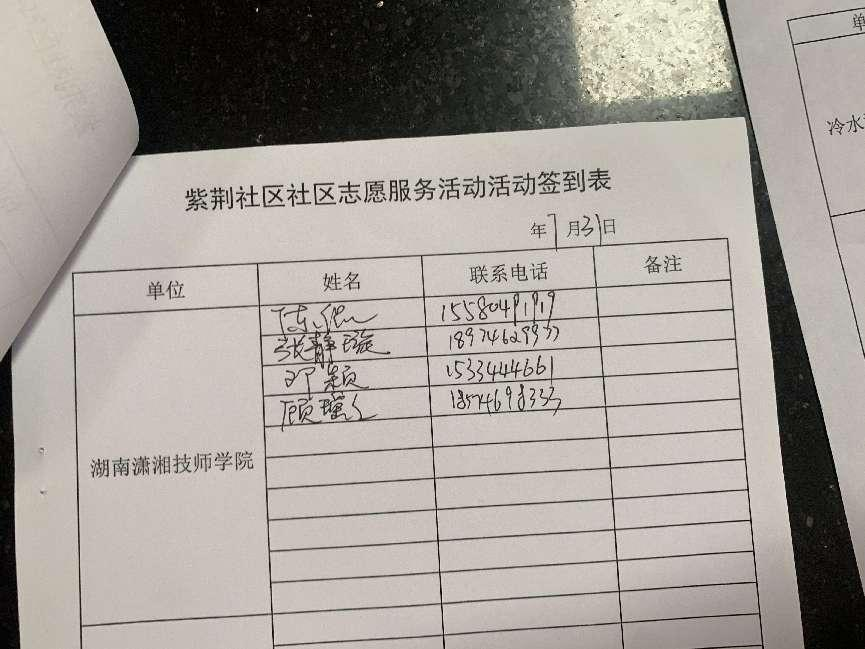 紫荆社区社区志愿服务活动活动签到表
年7月31日
单位 姓名 联系电话 备注
张静璇 18974629933
邓颖 1533444661
顾 18574698333
湖南潇湘技师学院
单
冷水